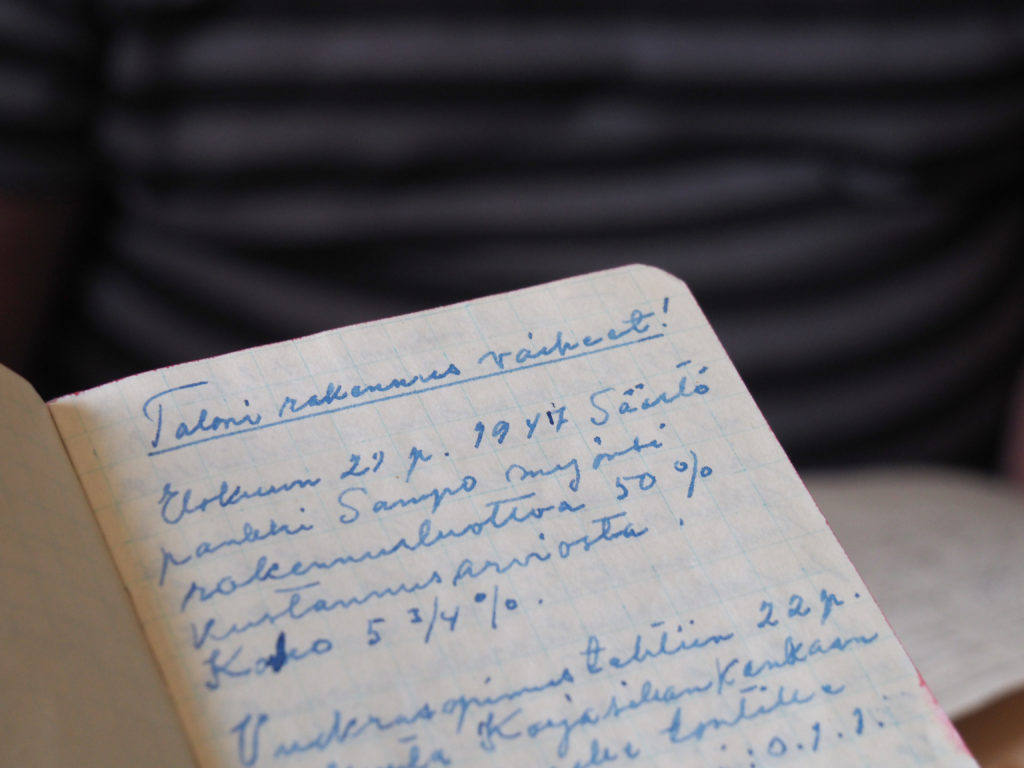 Taloni rakennus vaiheet!
Elokuun 29 p. 1947 Säästö
pankki Sampo myönsi
rakennusluottoa 50 %
kustannusarviosta.
Korko 5 3/4 %.
Vuokrasopimus tehtiin 22 p.
Karjasillankankaan
tontille